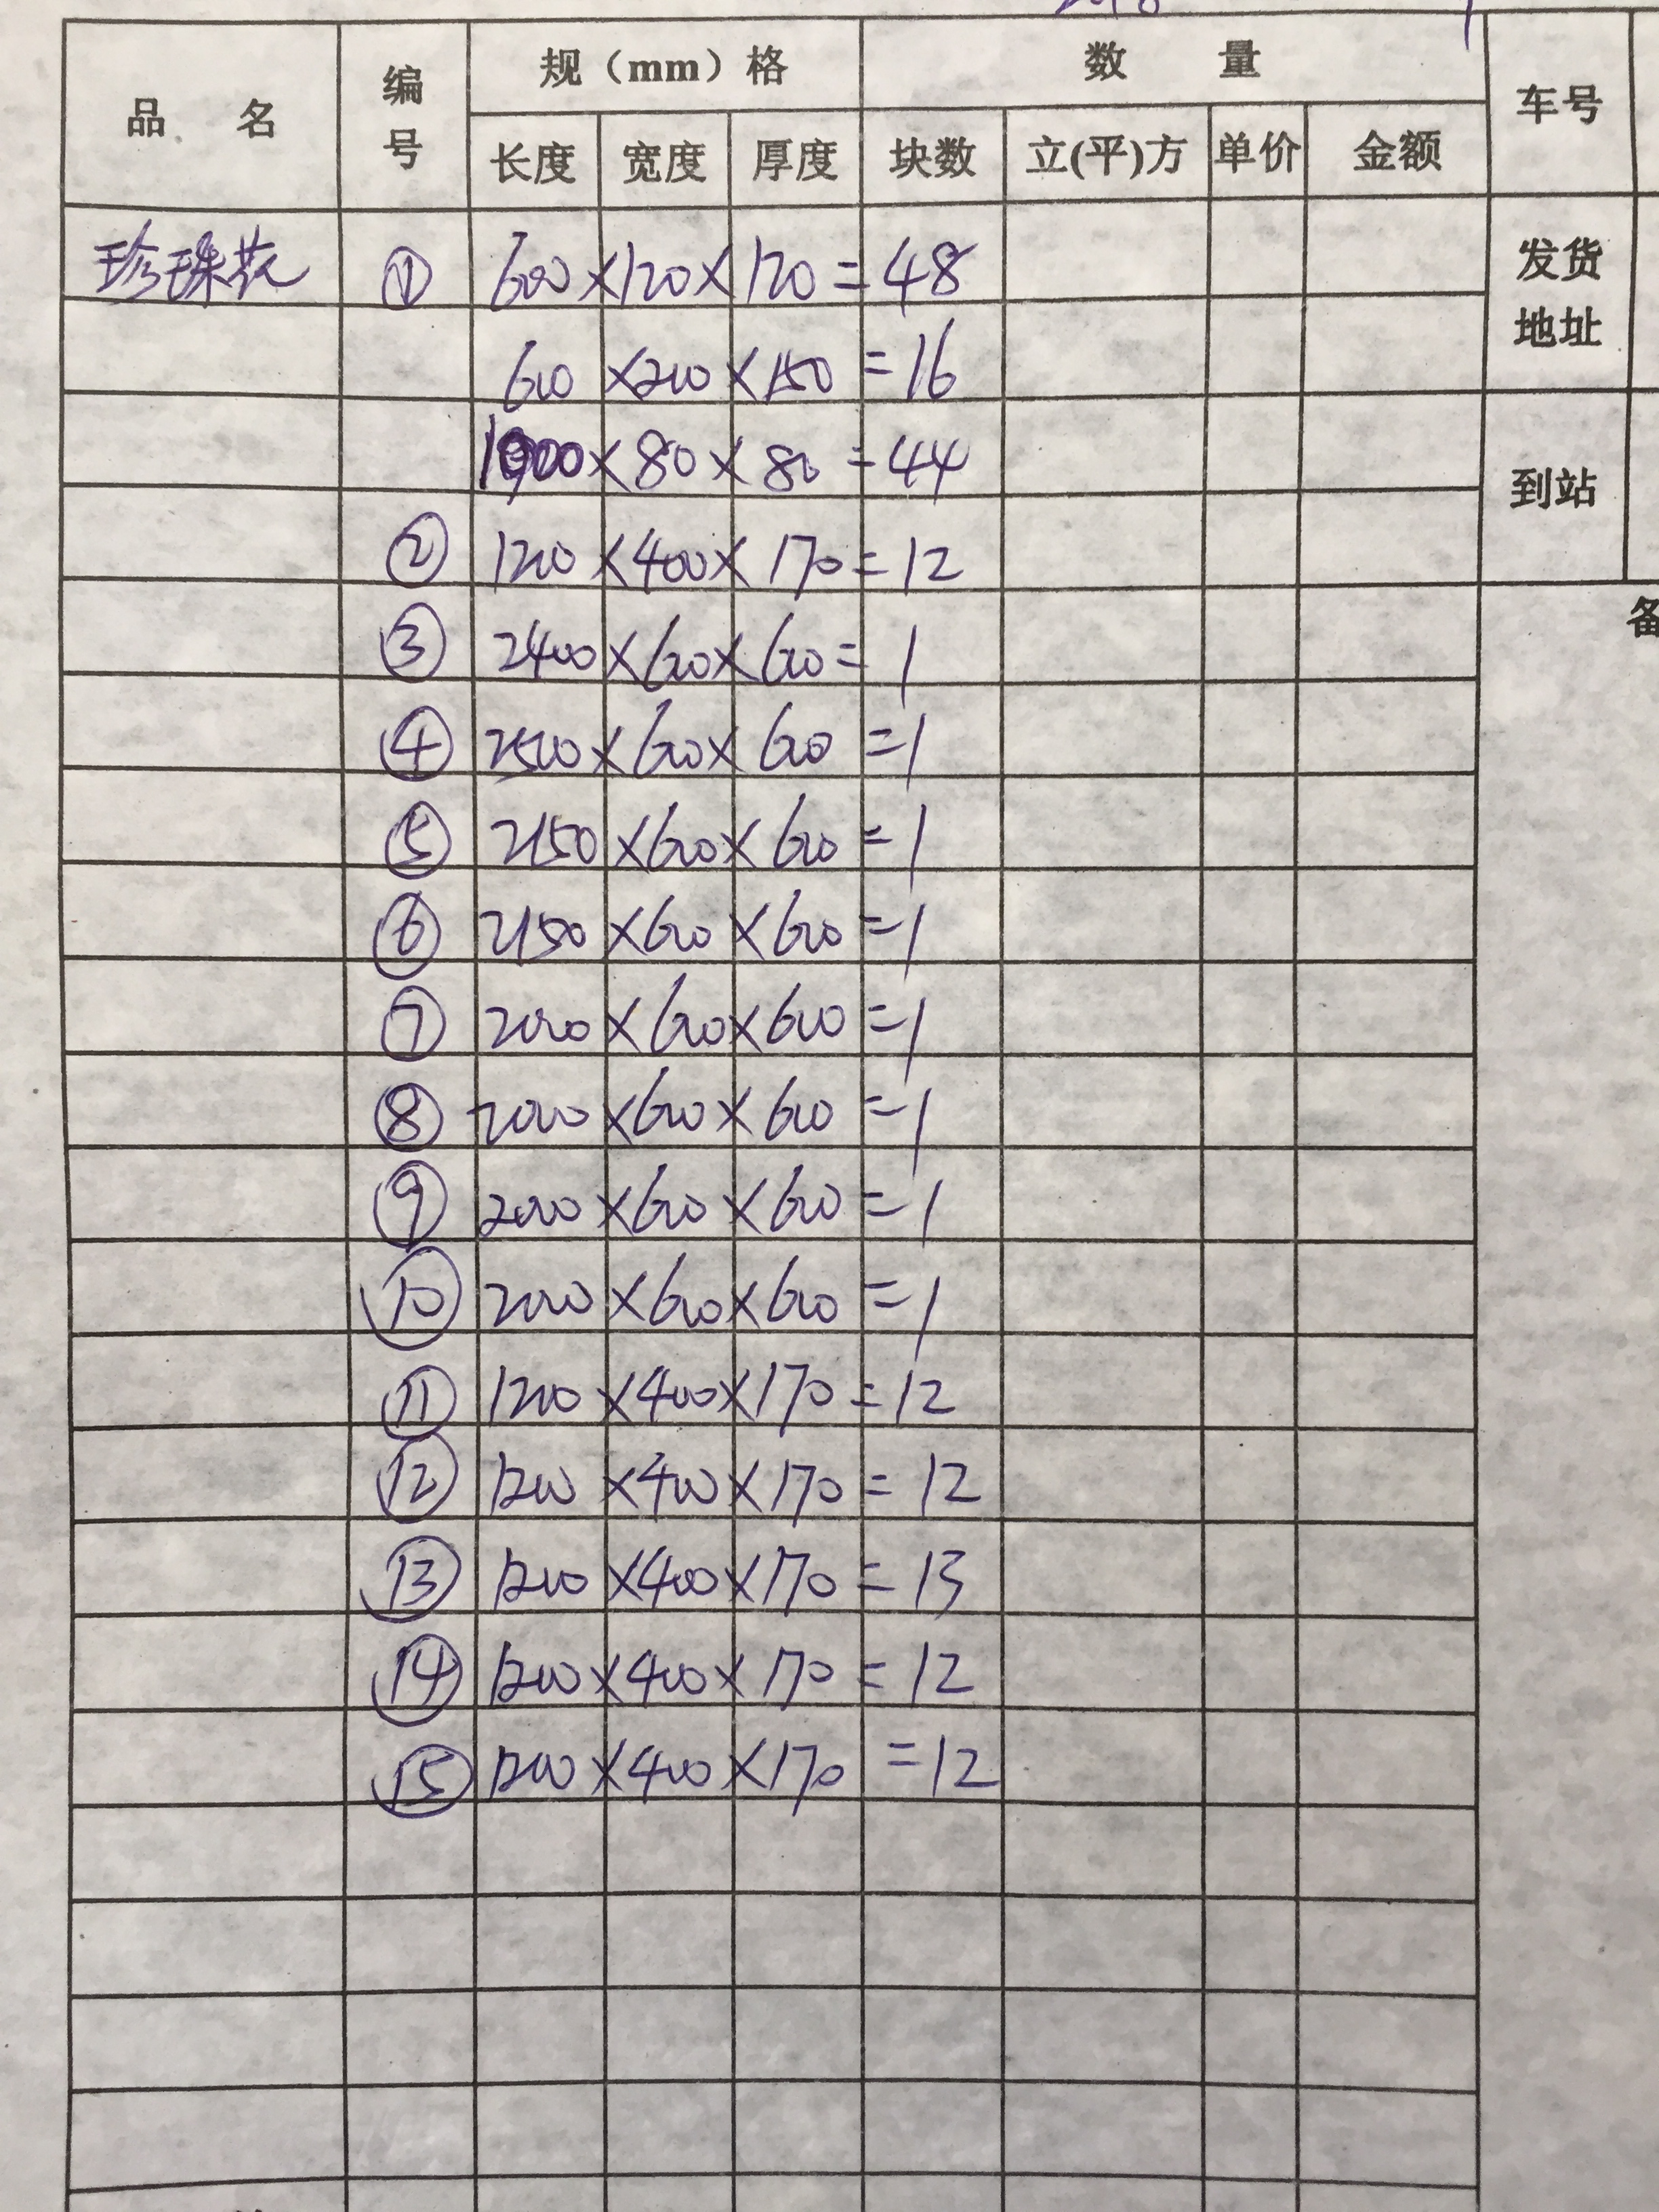 品 名 编号 规（mm）格 数 量 车号
长度 宽度 厚度 块数 立(平)方 单价 金额
珍珠花 ① 600×120×120=48 发货地址
600×200×150=16
×80×80=44 到站
② 1200×400×170=12
③ 2400×600×600=1 备
④ 2500×600×600=1
⑤ 2150×600×600=1
⑥ 2150×600×600=1
⑦ 2000×600×600=1
⑧ 2000×600×600=1
⑨ 2000×600×600=1
⑩ 2000×600×600=1
⑪ 1200×400×170=12
⑫ 1200×400×170=12
⑬ 1200×400×170=13
⑭ 1200×400×170=12
⑮ 1200×400×170=12